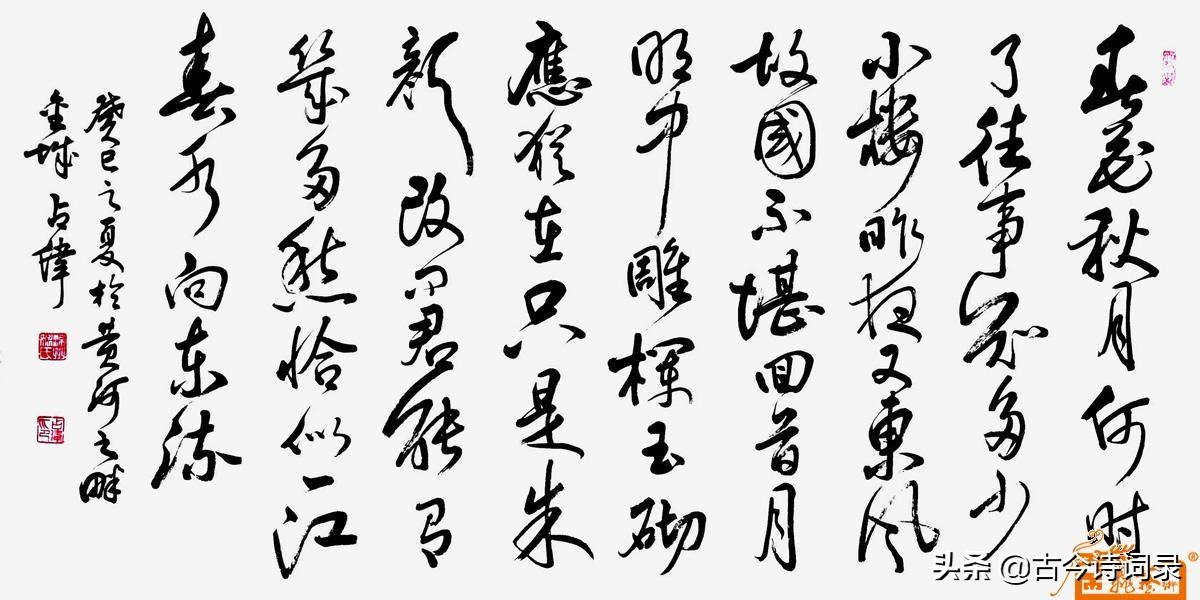 春花秋月何时
了往事知多少
小楼昨夜又東风
故國不堪回首月
明中雕欄玉砌
應猶在只是朱
颜改问君能有
幾多愁恰似一江
春水向东流
癸巳之夏於黄河之畔
金城占
头条 @古今诗词录